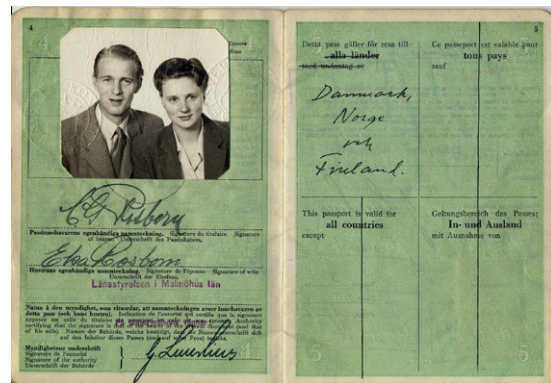 4
Passinnehavarens egenhändiga namnteckning. Signature du titulaire. Signature
of bearer. Unterschrift des Passinhabers.
Hustruns egenhändiga namnteckning. Signature de l'épouse. Signature of wife.
Unterschrift der Ehefrau.
Länsstyrelsen i Malmöhus län
Namn å den myndighet, som vitsordar, att namnteckningen avser innehavaren av
detta pass (och hans hustru). Indication de l'autorité qui certifie que la signature
Myndighetens underskrift
Signature de l'autorité
Signature of the authority
Unterschrift der Behörde
5
Detta pass gäller för resa till
alla länder
med undantag av
Ce passeport est valable pour
tous pays
sauf
Danmark,
Norge
och
Finland.
This passport is valid for
all countries
except
Geltungsbereich des Passes:
In- und Ausland
mit Ausnahme von
5
5